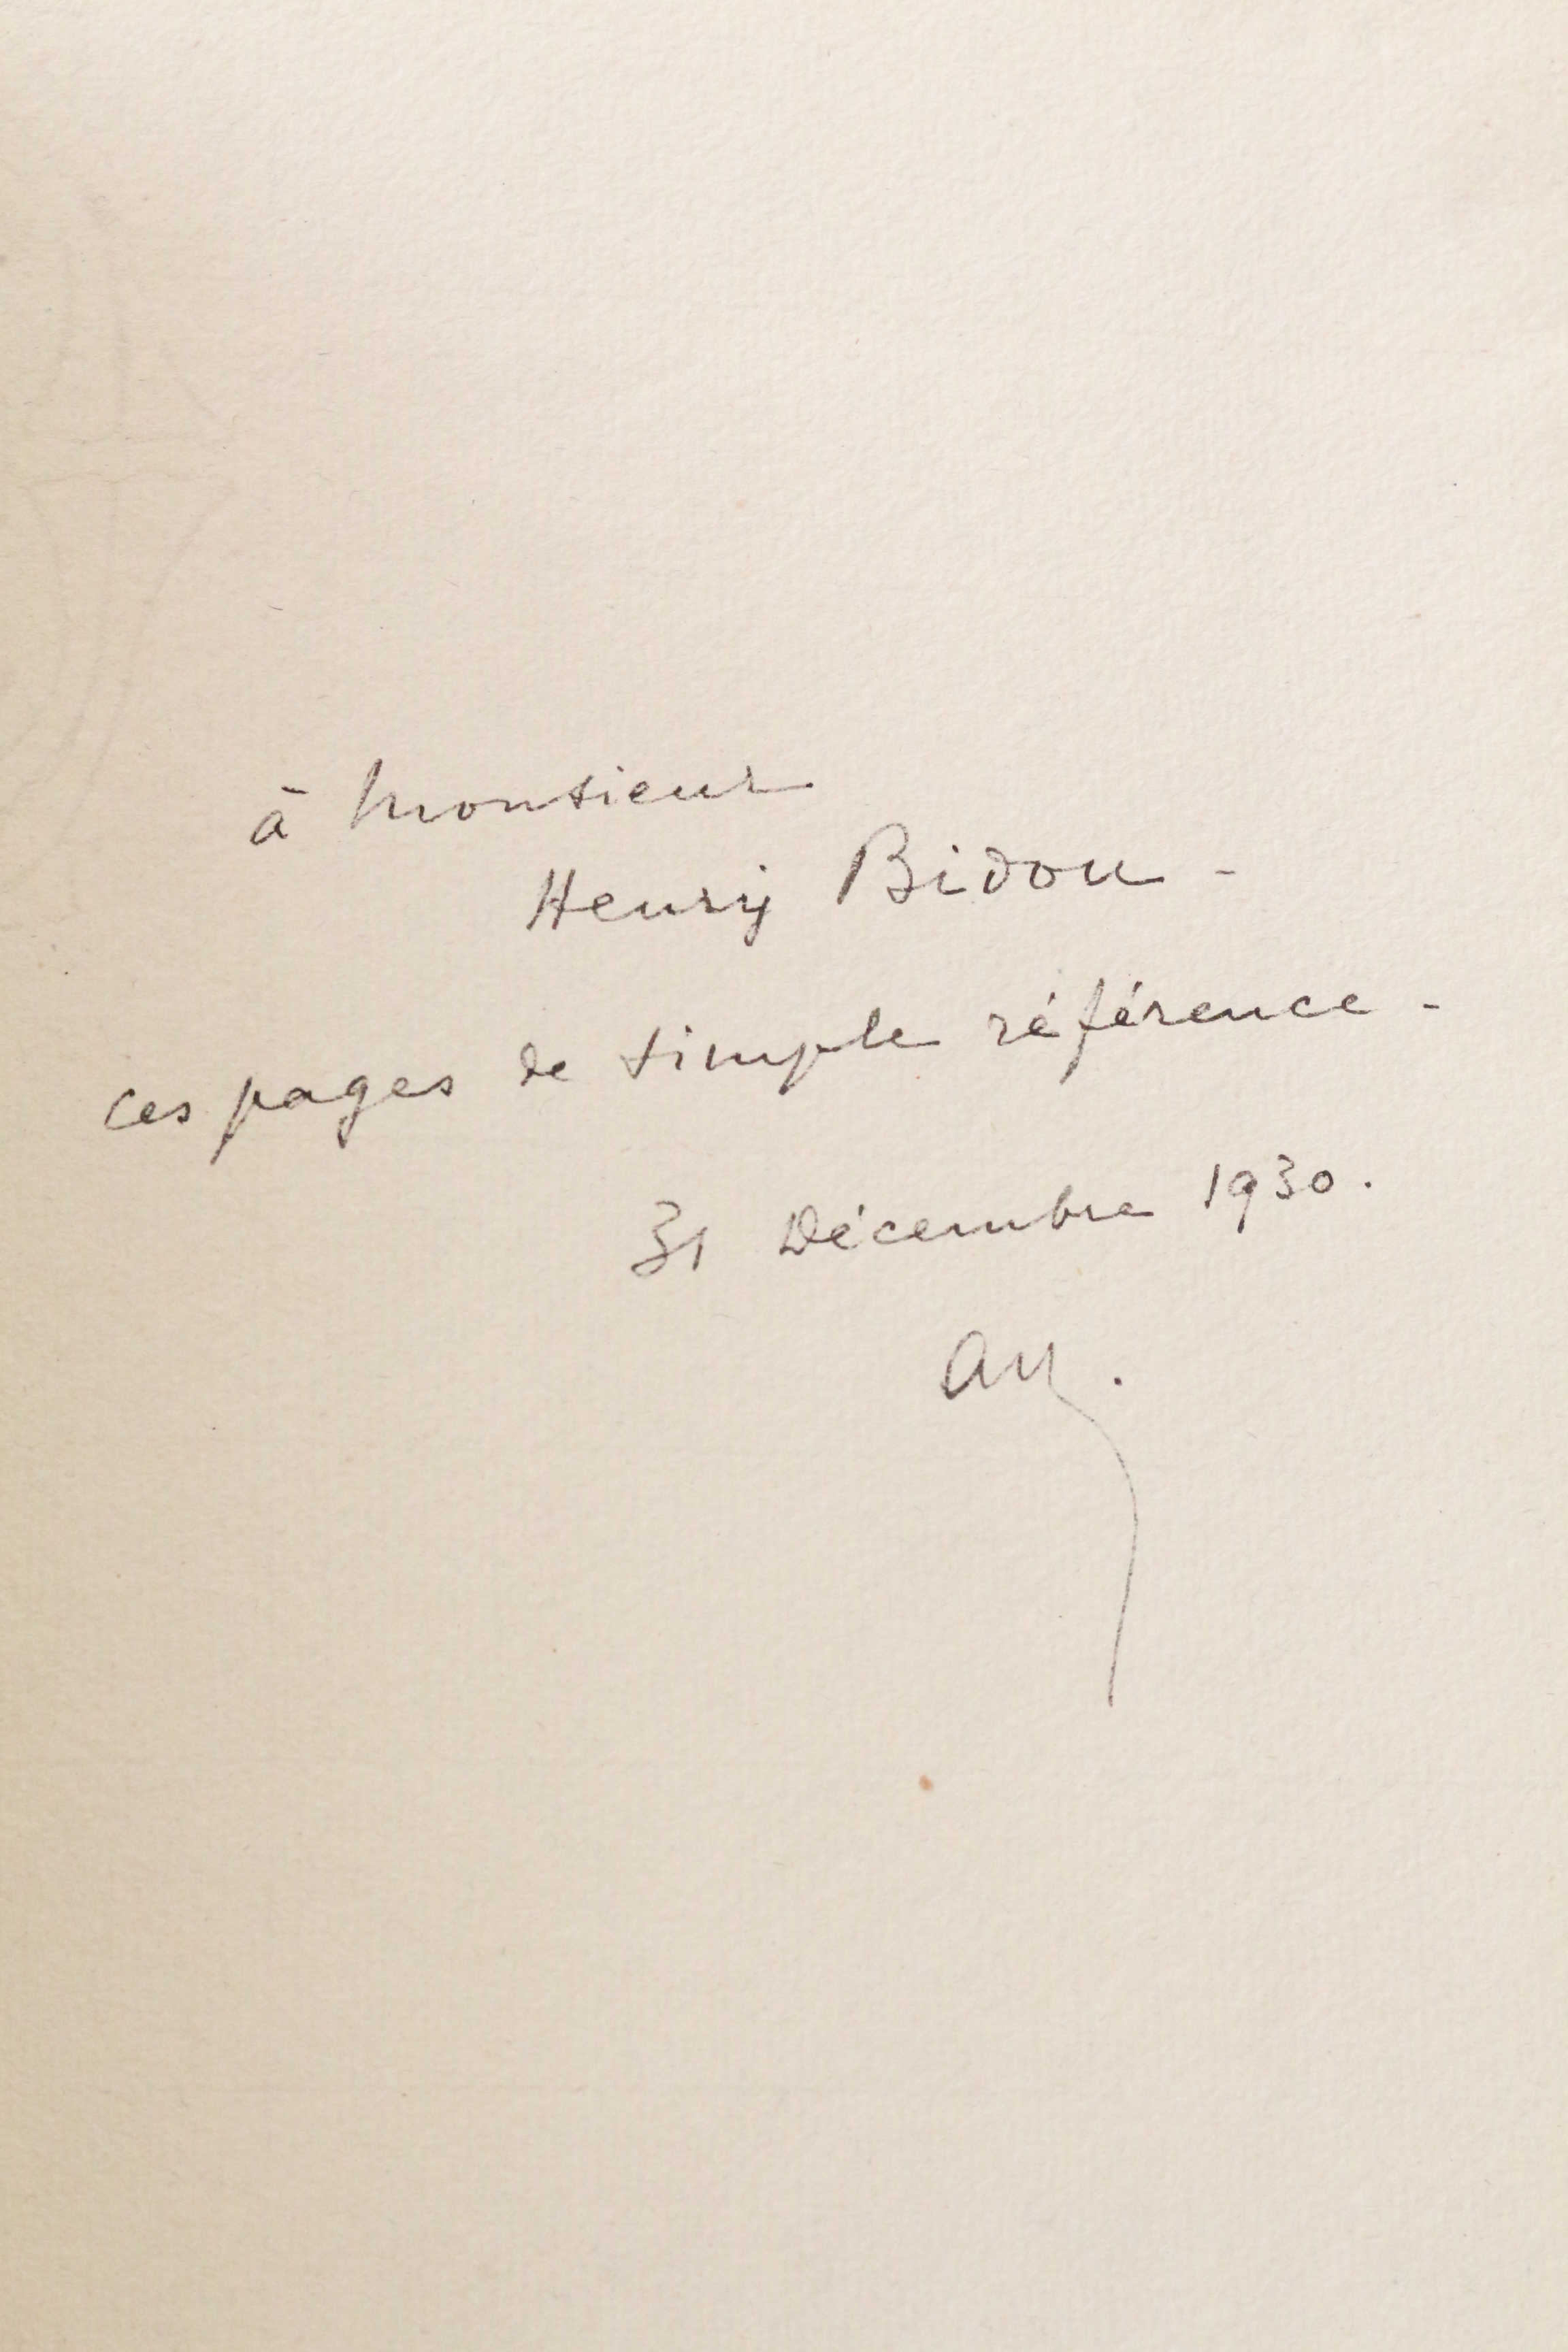 à Monsieur
Henry Bidou -
ces pages de simple référence -
31 Décembre 1930.